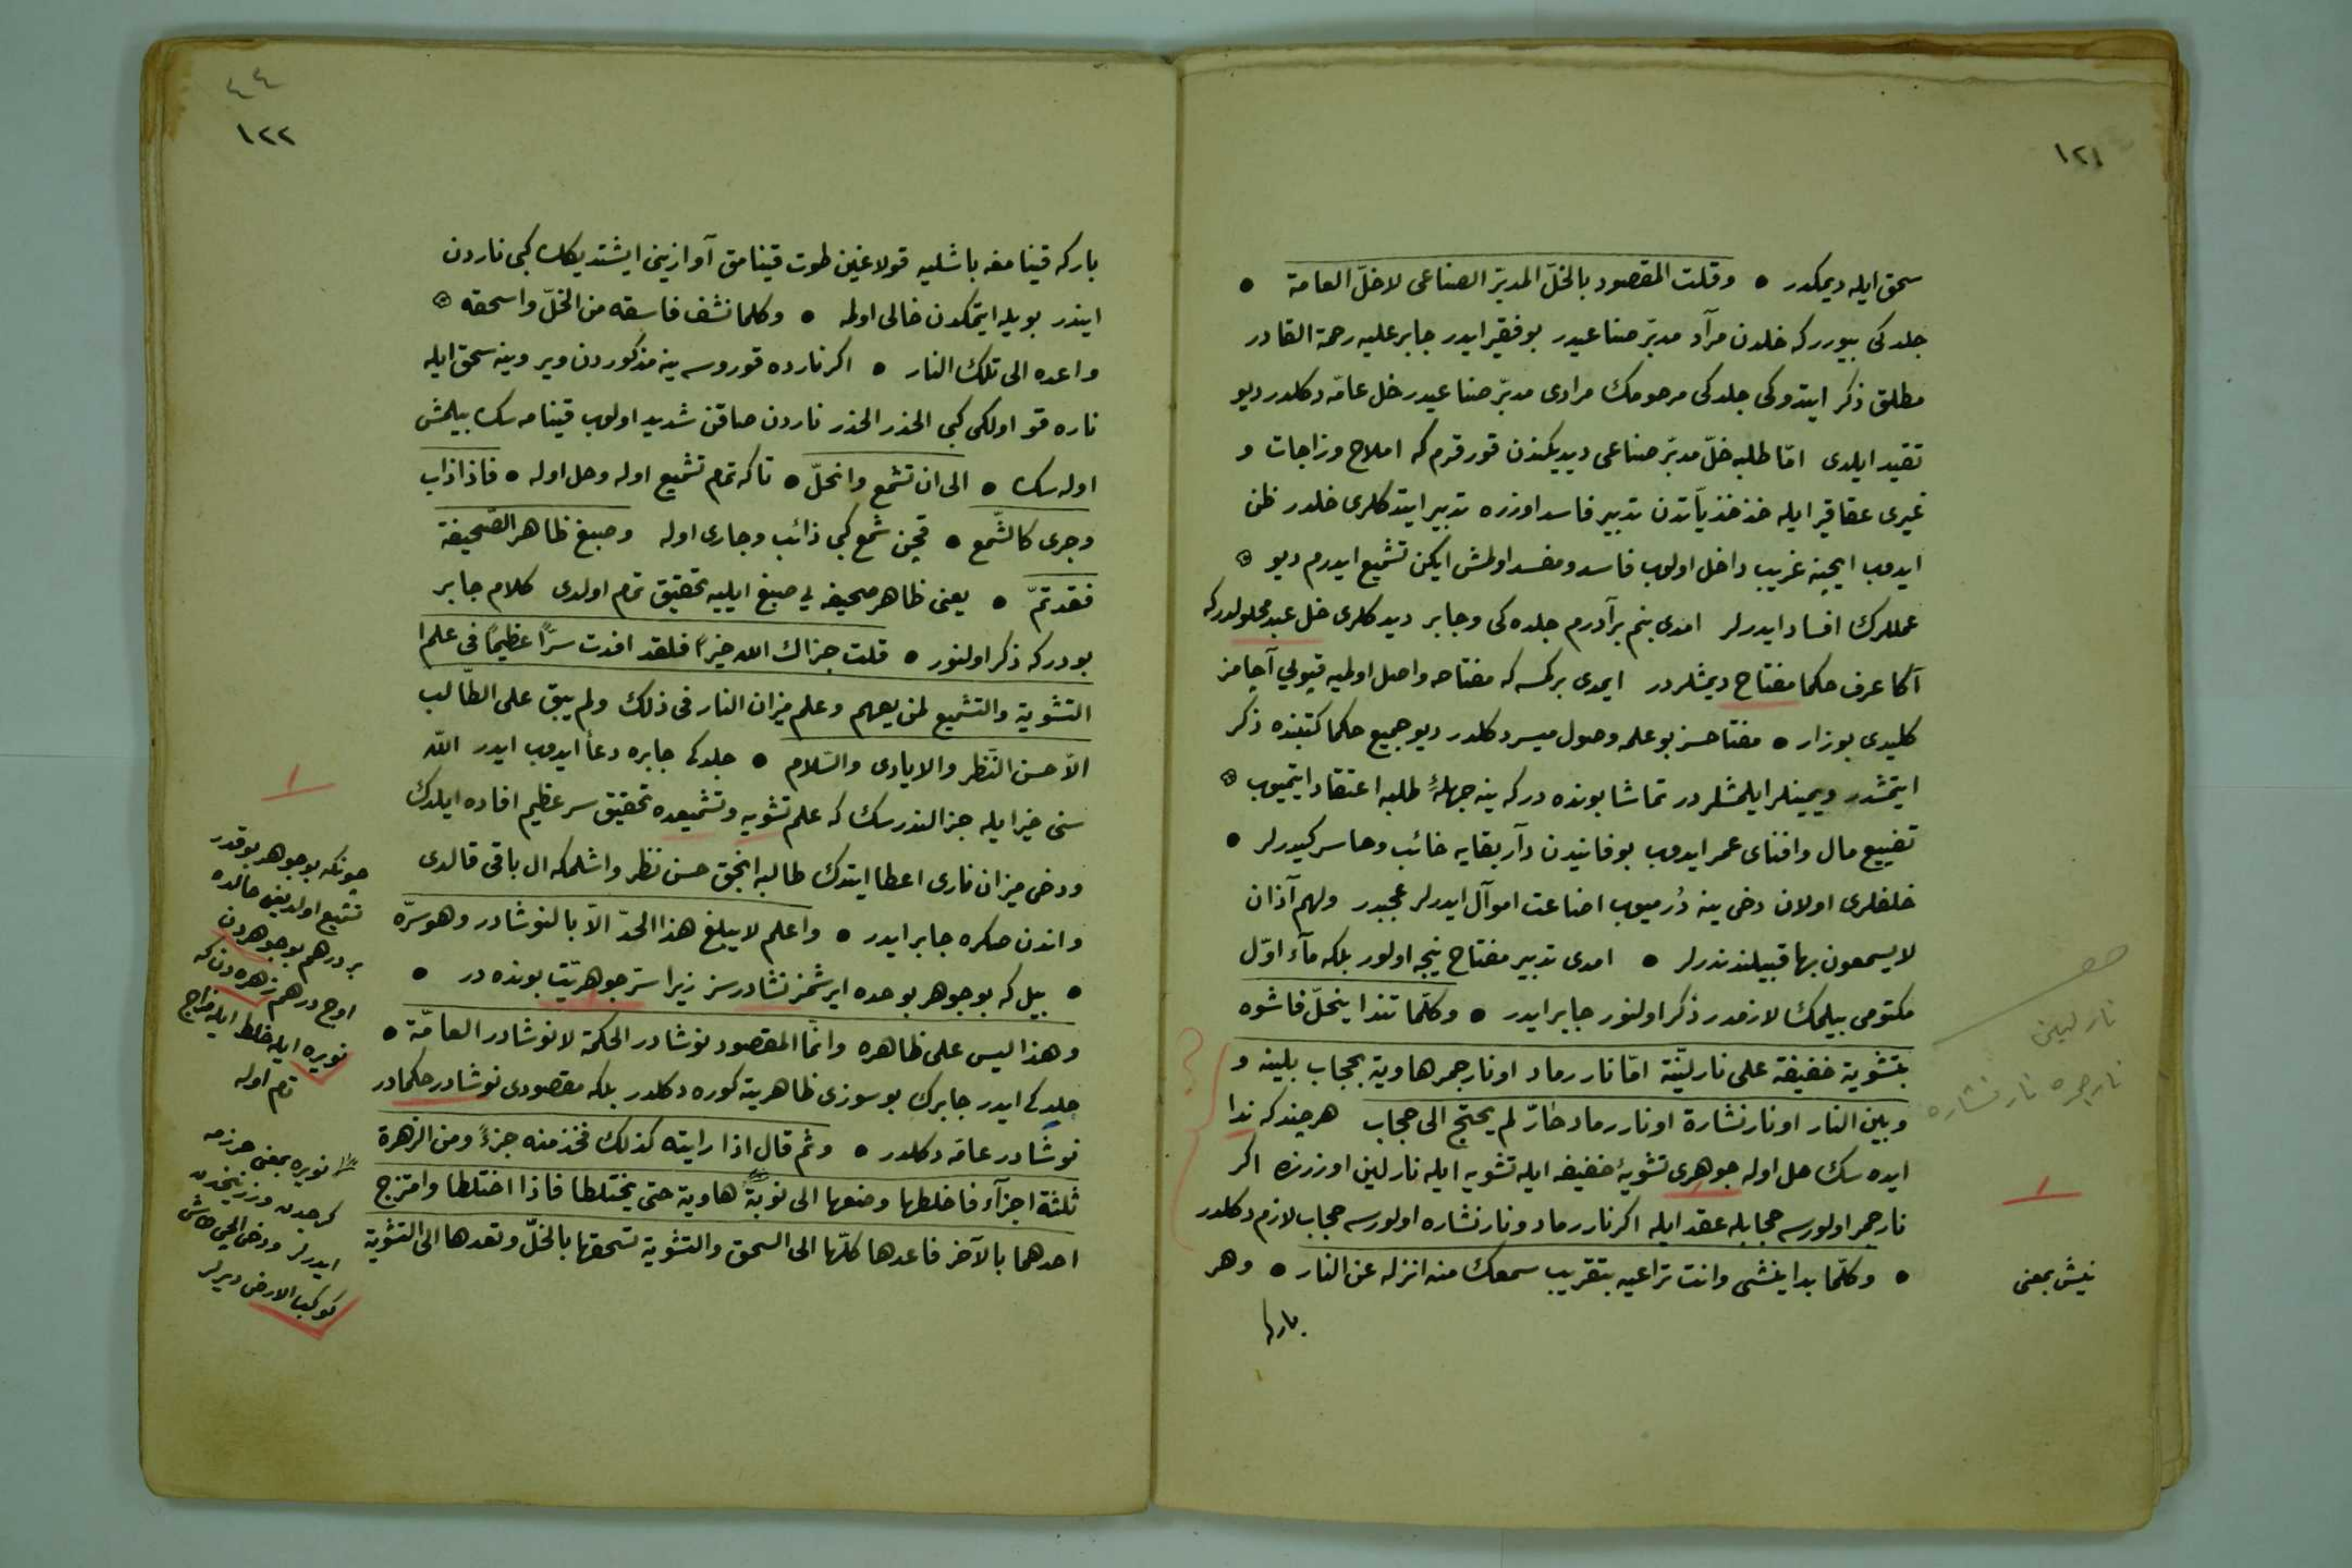 ١٢١
سحق ایله دیمكدر • وقلت المقصود بالخلّ المدبّر الصناعی لا خلّ العامة •
جلدكی بیوررکه خلدن مرآد مدبّر صناعیدر بو فقیر ایدر جابر علیه رحمة القادر
مطلق ذكر ایتدوكی جلدكی مرحومك مرادی مدبّر صناعیدر خل عامّه دكلدر دیو
تقید ایلدی امّا طلبه خلّ مدبّر صناعی دیدیكندن قورقرم كه املاح وزاجات و
غیری عقاقیر ایله خذخذیّاتدن تدبیر فاسد اوزره تدبیر ایتدكلری خلدر ظن
ایدوب ایچینه غریب داخل اولوب فاسد ومفسد اولمش ایكن تشمیع ایدرم دیو
عمللرك افساد ایدرلر امدی بنم برآدرم جلده كی وجابر دیدكلری خل عبد محلولدركه
آكا عرف حكما مفتاح دیمشلردر ایمدی بركسه كه مفتاحه واصل اولمیه قپولی آچامز
كلیدی بوزار • مفتاحسز بو علمه وصول میسر دكلدر دیو جمیع حكما كتبنده ذكر
ایتمشدر ویمینلر ایلمشلردر تماشا بونده دركه ینه جهلهٔ طلبه اعتقاد ایتمیوب
تضییع مال وافنای عمر ایدوب بو فانیدن دآر بقایه خائب وخاسر كیدرلر •
خلفلری اولان دخی ینه دُرمیوب اضاعت اموآل ایدرلر عجبدر ولهم آذان
لا یسمعون بها قبیلندندرلر • امدی تدبیر مفتاح نیجه اولور بلكه مآء اوّل
مكتومی بیلمك لازمدر ذكر اولنور جابر ایدر • وكلّما تندا ینحلّ فاشوه
بتشویة خفیفة علی نار لیّنة امّا نار رماد او نار جمر هاویة بحجاب بلینه و
وبین النار او نار نشارة او نار رماد حارّ لم یحتج الی حجاب هر چند كه ندا
ایده سك حل اوله جوهری تشویهٔ خفیفه ایله تشویه ایله نار لین اوزرنه اكر
نار جمر اولورسه حجابله عقد ایله اكر نار رماد و نار نشاره اولورسه حجاب لازم دكلدر
• وكلّما بدا ینشی وانت تراعیه بتقریب سمعك منه انزله عن النار • وهر
باركه
نار لیین
نار جمره نار نشاره
١
نیش بمعنی
٤٤
١٢٢
باركه قینامغه باشلیه قولاغین طوت قینامق آوازینی ایشتدیكك كبی ناردن
ایندر بویله ایتمكدن خالی اولمه • وكلما نشف فاسقه من الخلّ واسحقه
واعده الی تلك النار • اكر نارده قوروسه ینه مذكوردن ویر وینه سحق ایله
ناره قو اولكی كبی الحذر الحذر ناردن صاقن شدید اولوب قینامه سك بیلمش
اوله سك • الی ان تشمع وانحلّ • تا كه تمام تشمیع اوله وحل اوله • فاذا ذاب
وجری كالشّمع • قچن شمع كبی ذائب وجاری اوله وصبغ ظاهر الصّحیفة
فقد تمّ • یعنی ظاهر صحیفه یی صبغ ایلیه تحقیق تمام اولدی كلام جابر
بودركه ذكر اولنور • قلت جزاك الله خیرًا فلقد افدت سرًّا عظیمًا فی علم ا
التشویة والتشمیع لمن یفهم وعلم میزان النار فی ذلك ولم یبق علی الطّالب
الّا حسن النّظر والایادی والسّلام • جلدكی جابره دعاٴ ایدوب ایدر اللّه
سنی خیر ایله جزالندرسك كه علم تشویه وتشمیعده تحقیق سر عظیم افاده ایلدك
ودخی میزان ناری اعطا ایتدك طالبه انجق حسن نظر واشلمكه ال باقی قالدی
واندن صكره جابر ایدر • واعلم لا یبلغ هذا الحدّ الّا بالنوشادر وهو سرّه
• بیل كه بو جوهر بو حده ایرشمز نشادرسز زیرا سر جوهریّت بونده در •
وهذا لیس علی ظاهره وانّما المقصود نوشادر الحكمة لا نوشادر العامّة •
جلدكی ایدر جابرك بو سوزی ظاهرینه كوره دكلدر بلكه مقصودی نوشادر حكمادر
نوشادر عامّه دكلدر • وثم قال اذا رایته كذلك فخذ منه جزءً ومن الزهرة
ثلثة اجزآء فاخلطها وضعها الی نوبة هاویة حتی یختلطا فاذا اختلطا وامتزج
احدهما بالآخر فاعدها كلّها الی السحق والتشویة تسحقها بالخلّ وتعدها الی التشویة
١
چونكه بو جوهر بو قدر
تشمیع اولدیغی حالده
بر درهم بو جوهردن
اوچ درهم زهره دن كه
نویره ایله خلط ایله مزاج
تام اوله
نویره بمعنی هرزمه
كرجدن وزرنیخدن
ایدرلر ودخی الچی طاش
كوكب الارض دیرلر